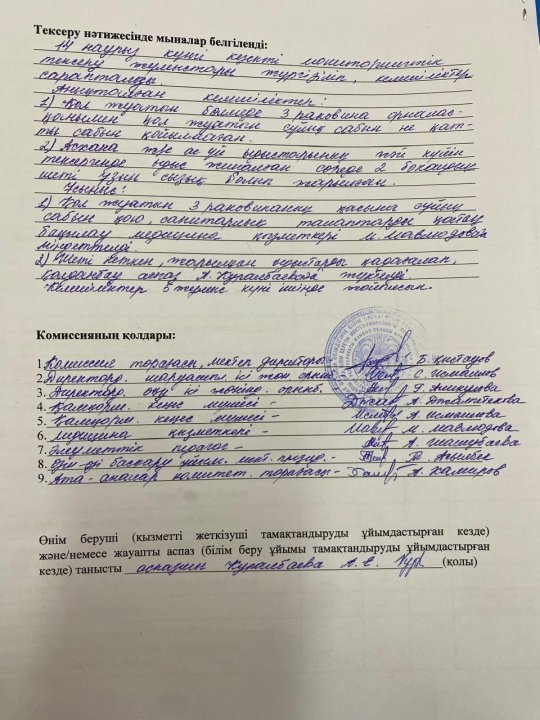 Тексеру нәтижесінде мыналар белгіленді:
14 наурыз күні кезекті мониторингтік
тексеру жұмыстары жүргізіліп, кемшіліктер
сарапталды.
Анықталған кемшіліктер:
1) Қол жуатын бөлмеде 3 раковина орналас-
қанымен қол жуатын сұйық сабын не қат-
ты сабын қойылмаған.
2) Асхана және ас үй ыдыстарының жай күйін
тексергенде ыдыс жиналған сөреде 2 бокалдың
шеті ұзын сызық болып жарылған.
Ұсыныс:
1) Қол жуатын 3 раковинаның қасына сұйық
сабын қою, санитарлық талаптарды қатаң
бақылау медицина қызметкері М. Мавлюдоваға
міндеттелді.
2) Шеті кеткен, жарылған ыдыстарды қадағалап,
қолданбау аспаз А. Куралбаеваға жүктелді.
Кемшіліктер 5 жұмыс күні ішінде жойылсын.
Комиссияның қолдары:
1. Комиссия төрағасы, мектеп директоры Б. Қыстауов
2. Директорд. шаруашыл. ісі жөн. орынб. С. Исмаилов
3. Директорд. оқу ісі жөнінд. орынб. Г. Амирова
4. Қамқорш. кеңес мүшесі - А. Джайметекова
5. Қамқорш. кеңес мүшесі - А. Исмаилова
6. Медицина қызметкері - М. Мавлюдова
7. Әлеуметтік педагог - А.
8. Өзін-өзі басқару ұйым. мект. -
9. Ата-аналар комитет. төрағасы - А. Хамиров
Өнім беруші (қызметті жеткізуші тамақтандыруды ұйымдастырған кезде)
және/немесе жауапты аспаз (білім беру ұйымы тамақтандыруды ұйымдастырған
кезде) танысты аспазшы Куралбаева А. Е. (қолы)